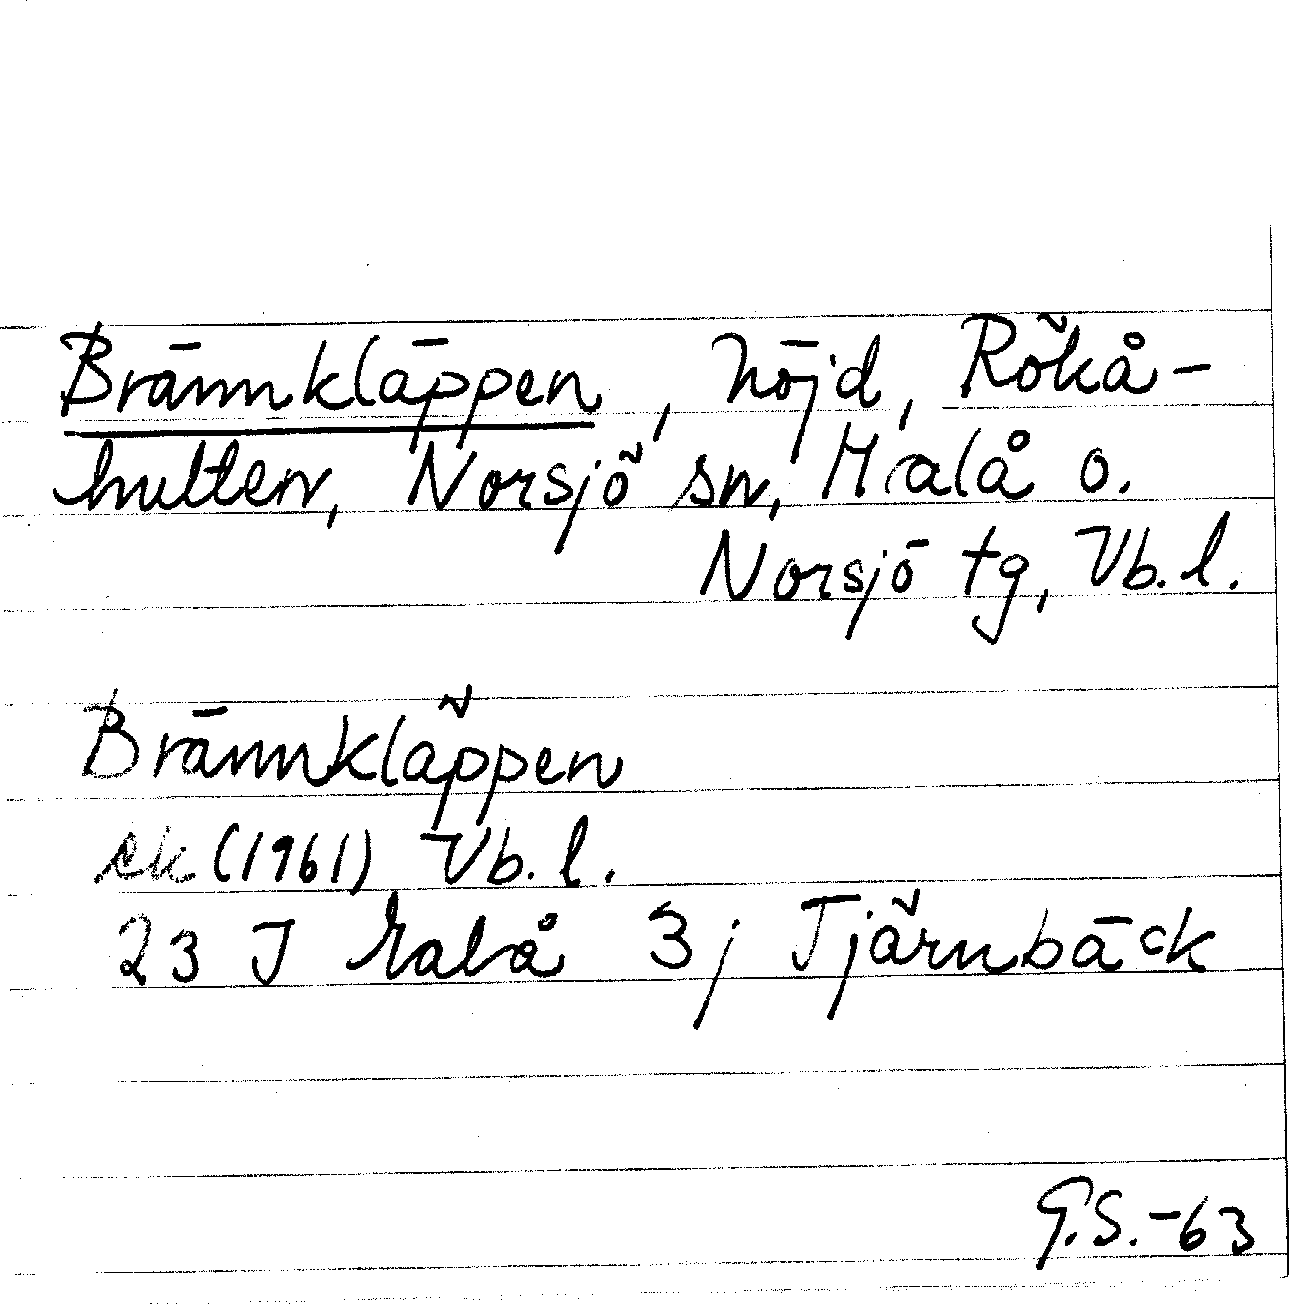 Brännkläppen, höjd, Rökå-
hulten, Norsjö sn, Malå o.
Norsjö tg, Vb.l.
Brännkläppen
ek (1961) Vb.l.
23 J Malå 3j Tjärnbäck
G.S.-63